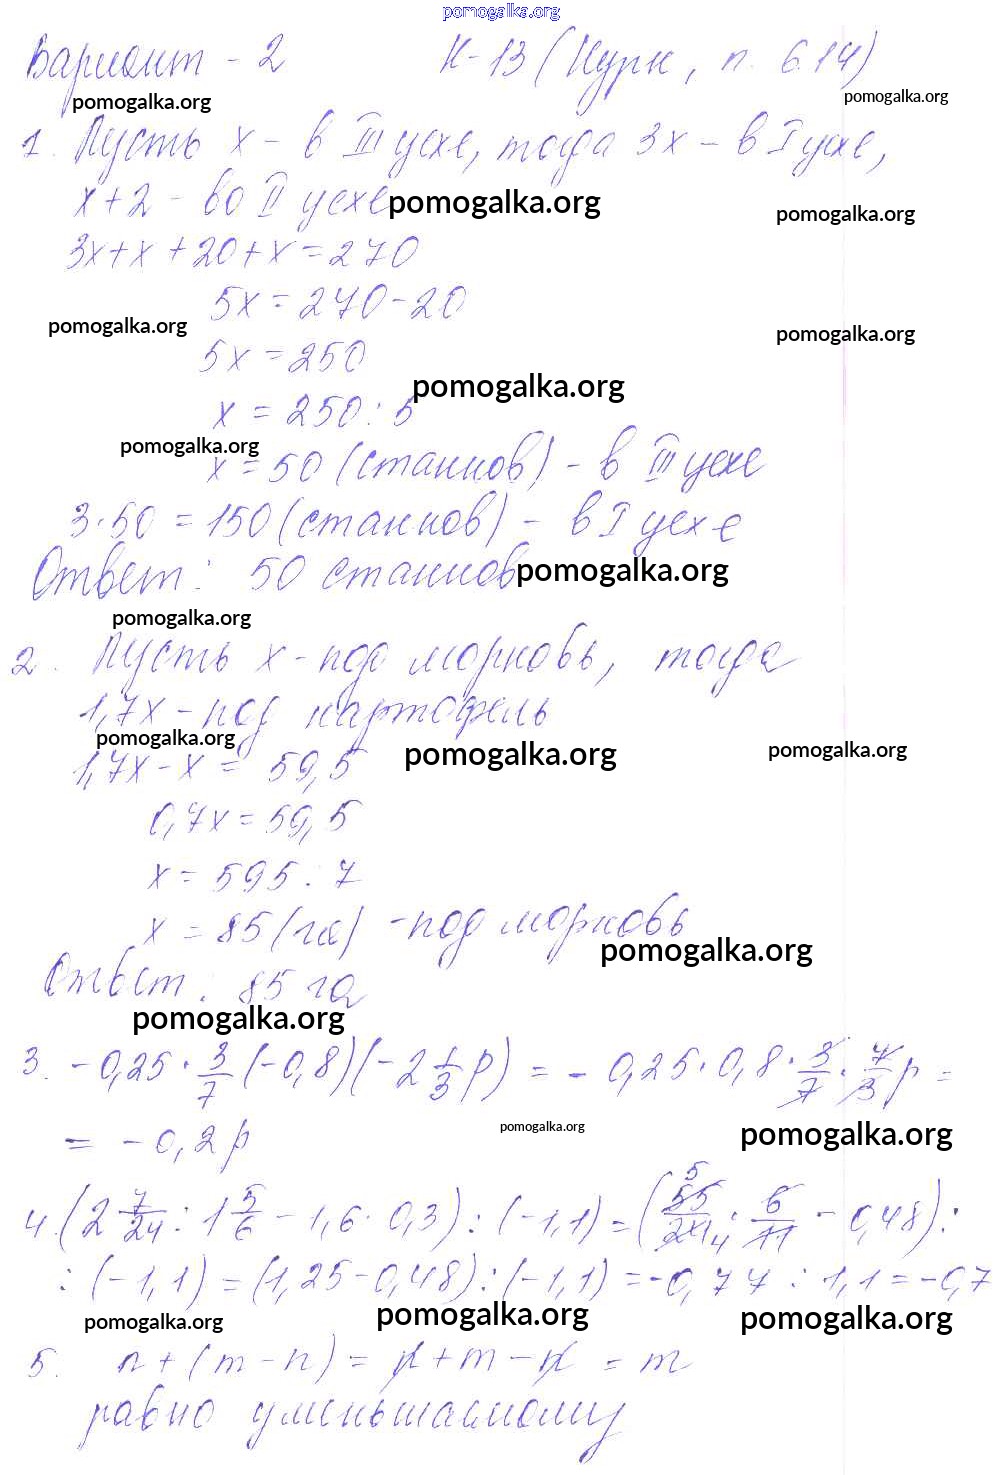 pomogalka.org
Вариант - 2 К-13 (Нурк, п. 6.14)
pomogalka.org pomogalka.org
1. Пусть x - в III цехе, тогда 3x - в I цехе,
x+2 - во II цехе pomogalka.org pomogalka.org
3x+x+20+x=270
5x=270-20
pomogalka.org pomogalka.org
5x=250
pomogalka.org
x=250:5
pomogalka.org
x=50 (станков) - в III цехе
3·50=150 (станков) - в I цехе
Ответ: 50 станков pomogalka.org
pomogalka.org
2. Пусть x - под морковь, тогда
1,7x - под картофель
pomogalka.org pomogalka.org pomogalka.org
1,7x-x=59,5
0,7x=59,5
x=595:7
x=85 (га) - под морковь
pomogalka.org
Ответ: 85 га
pomogalka.org
3. -0,25·3/7(-0,8)(-2 1/3 p) = -0,25·0,8·3/7·7/3 p =
= -0,2p pomogalka.org pomogalka.org
4. (2 7/24 : 1 5/6 - 1,6·0,3) : (-1,1) = (55 5/24 4 · 6/11 - 0,48) :
: (-1,1) = (1,25-0,48) : (-1,1) = -0,77 : 1,1 = -0,7
pomogalka.org pomogalka.org pomogalka.org
5. n+(m-n) = n+m-n = m
равно уменьшаемому